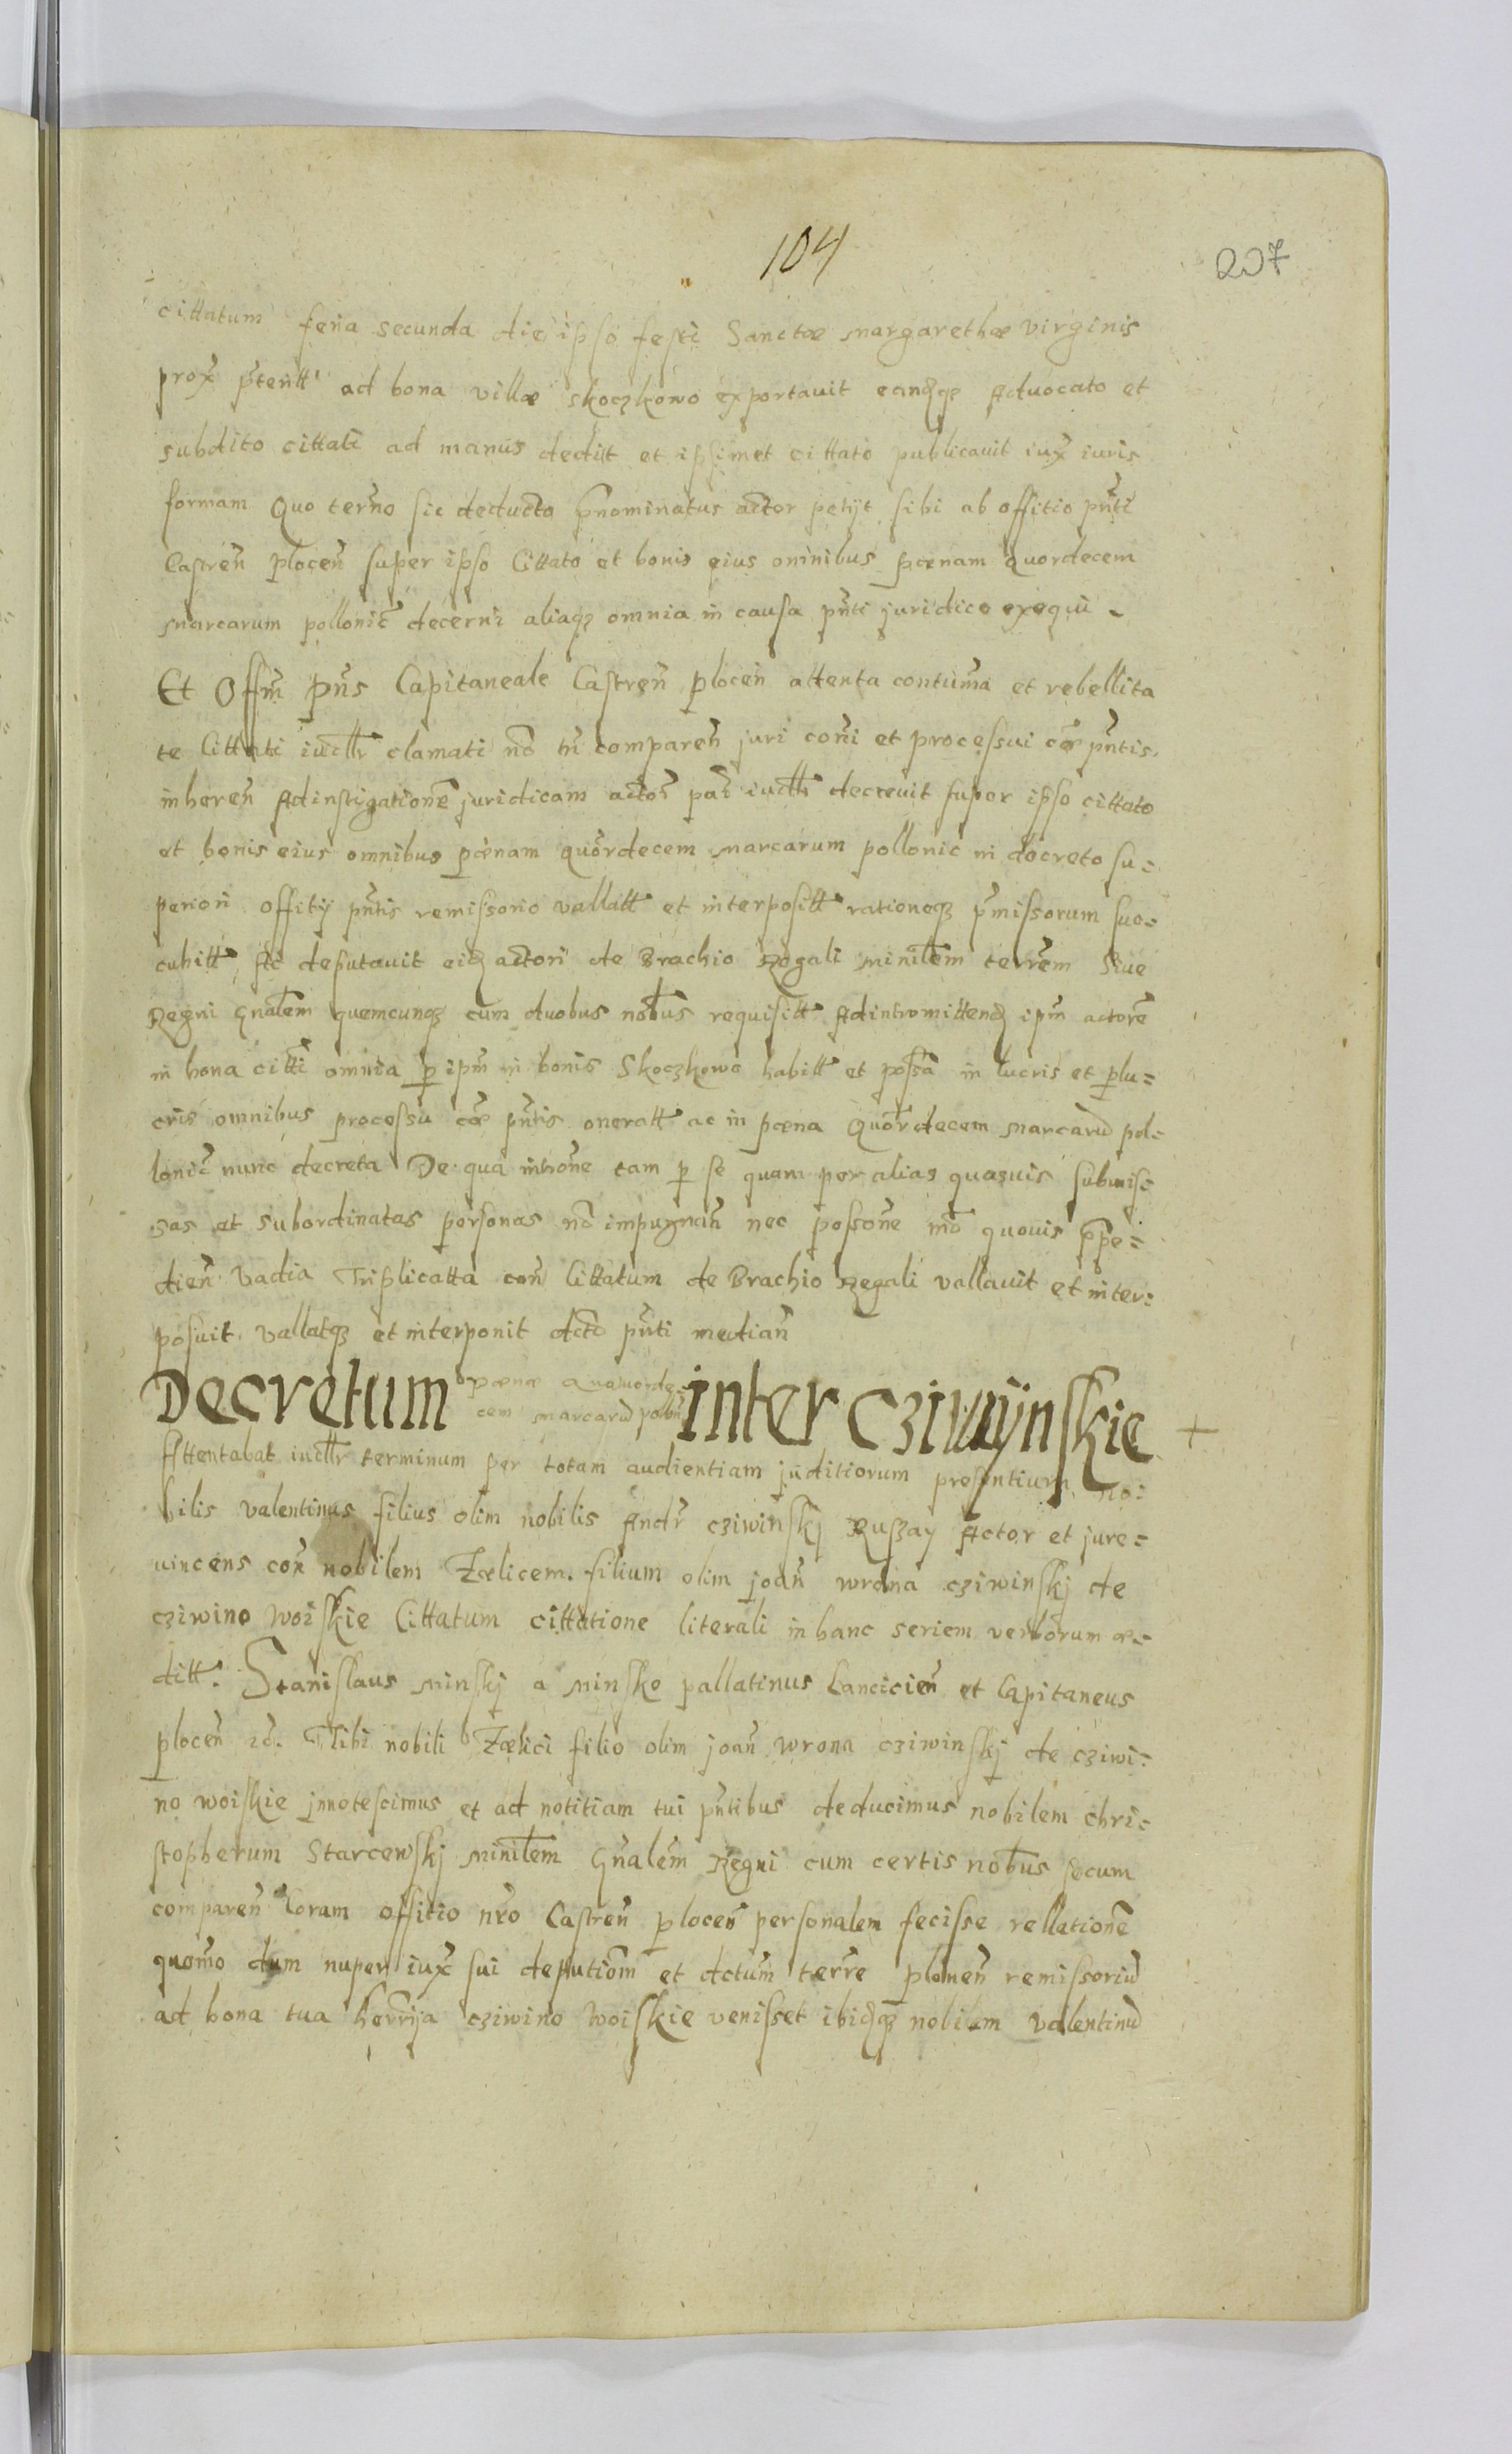 104
207
cittatum feria secunda die ipso festi Sanctæ Margarethæ virginis
prox p̃teritt ad bona villæ Skoczkowo exportauit eandqz Aduocato et
subdito cittati ad manus dedit et ipsimet cittato publicauit iux iuris
formam Quo term̃o sic deducto p̃nominatus actor petijt sibi ab offitio pñti
Castreñ ploceñ super ipso Cittato et bonis eius omnibus pœnam quordecem
marcarum pollonic̃ decerni aliaqz omnia in causa pñti juridice exequi
Et Offm̃ pñs Capitaneale Castreñ ploceñ attenta contum̃a et rebellita
te Cittati iudltr clamati nõ tñ compareñ juri coñi et processui cæ pñtis
inhereñ Ad instigationẽ juridicam actor̃ par̃ iudltr decreuit super ipso cittato
et bonis eius omnibus pœnam quordecem marcarum pollonic̃ in decreto su=
periori offitij pñtis remissorio vallatt et interpositt rationeqz p̃missorum suc=
cubitt Ac deputauit eidz actori de Brachio Regali minilem̃ terrem̃ Siue
Regni Gnalem̃ quemcunqz cum duobus nobus̃ requisitt Ad intromittendz ipm̃ actorẽ
in bona citti omnia p ipm̃ in bonis Skoczkowo habitt et possa in lucris et plu=
cris omnibus processu cæ pñtis oneratt ac in pœna Quordecem marcarũ pol=
lonic̃ nunc decreta De qua intrõne tam p se quam per alias quasuis submis=
sas et subordinatas personas nõ impugnañ nec possone mõ quouis p̃pe=
dieñ vadia Triplicatta coñ Cittatum de Brachio Regali vallauit et inter=
posuit vallatqz et interponit dctõ pñti mediañ
Decretum pœnæ Quatuorde=
cem marcarũ polloñ inter Cziwijnskie +
Attentabat iudltr terminum per totam audientiam juditiorum presentium no=
bilis Valentinus filius olim nobilis Andr̃ Cziwinskj Ruszay Actor et jure=
uincens coñ nobilem Fœlicem filium olim joañ Wrona Cziwinskj de
Cziwino Woiskie Cittatum cittatione literali in hanc seriem verborum æ=
ditt. Stanislaus Minskj a Minsko pallatinus Lancicieñ et Capitaneus
ploceñ ec̃. Tibi nobili Fœlici filio olim joañ Wrona Cziwinskj de Cziwi=
no Woiskie jnnotescimus et ad notitiam tui pñtibus deducimus nobilem Chri=
stopherum Starcewskj minilem̃ Gñalem̃ Regni cum certis nobus̃ secum
compareñ Coram offitio nrõ Castreñ ploceñ personalem fecisse rellationẽ
quomõ dum nuper iux sui deputiom̃ et dctum̃ terre ploneñ remissoriũ
ad bona tua herrija Cziwino Woiskie venisset ibidzqz nobilem Valentinũ